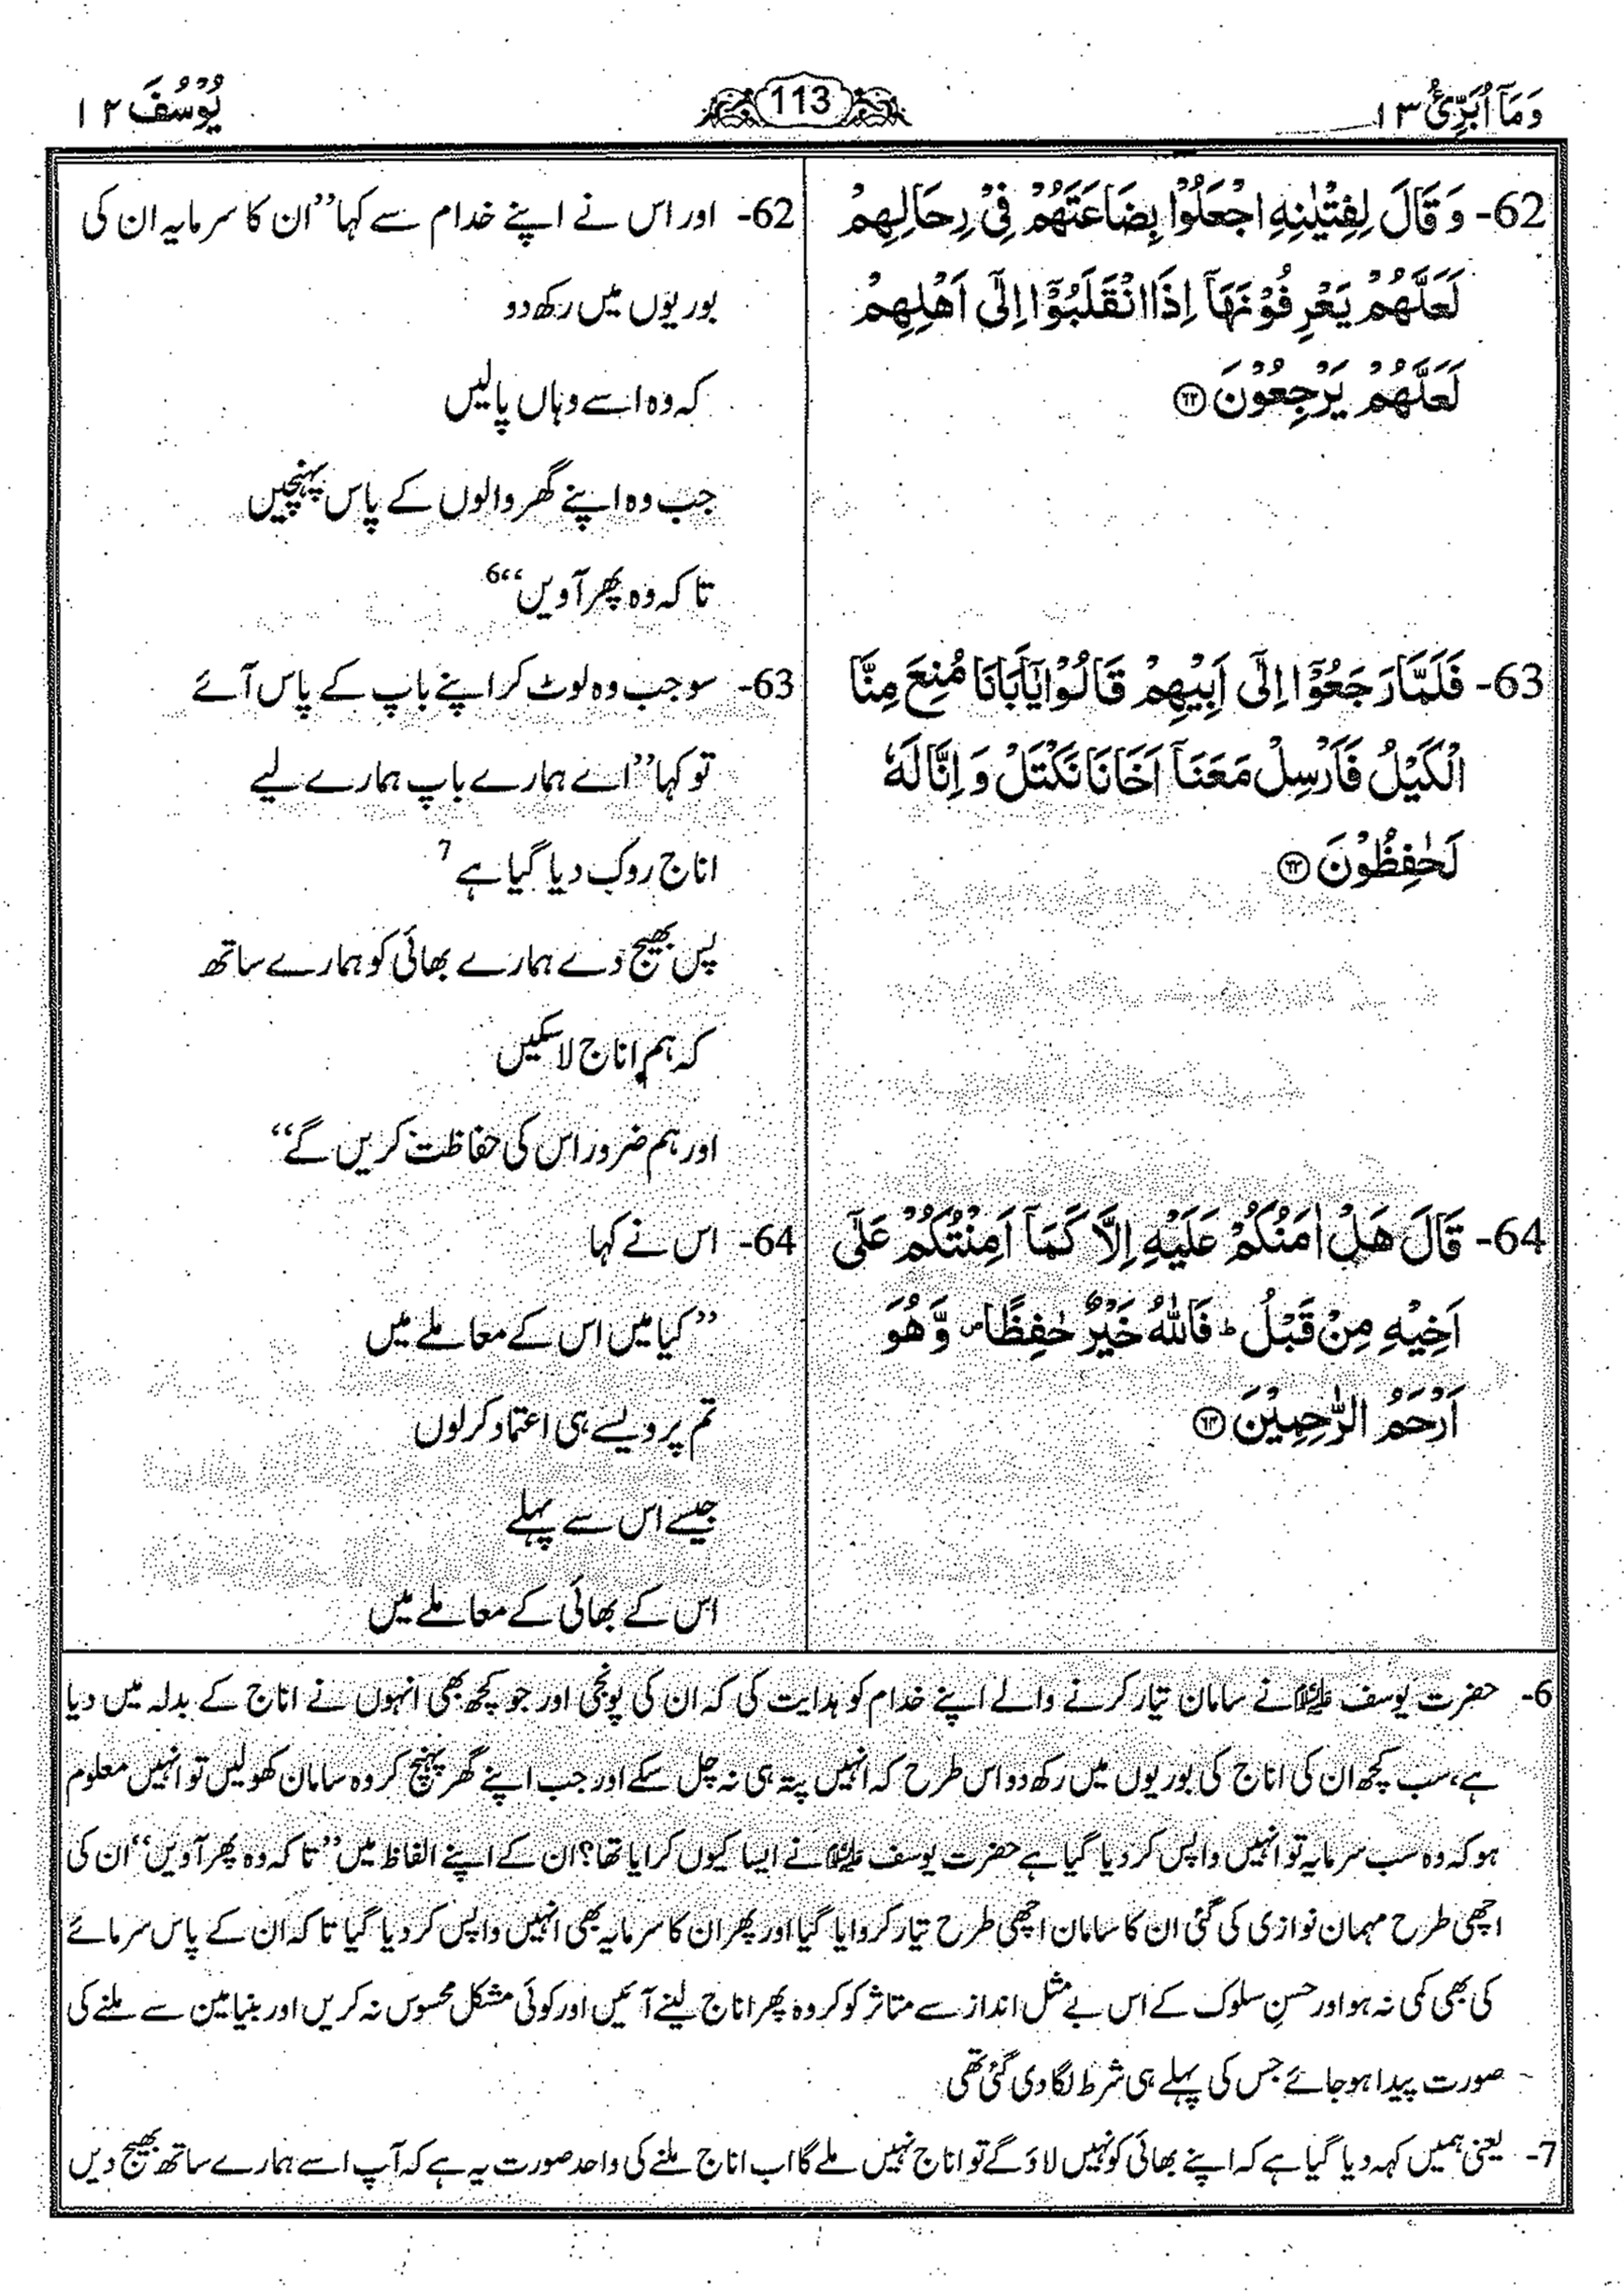 وَمَآ اُبَرِّئُ ۱۳
113
یُوْسُفَ ۱۲
62- وَ قَالَ لِفِتْیٰنِهِ اجْعَلُوْا بِضَاعَتَهُمْ فِیْ رِحَالِهِمْ
لَعَلَّهُمْ یَعْرِفُوْنَهَاۤ اِذَا انْقَلَبُوْۤا اِلٰۤی اَهْلِهِمْ
لَعَلَّهُمْ یَرْجِعُوْنَ ۶۲
63- فَلَمَّا رَجَعُوْۤا اِلٰۤی اَبِیْهِمْ قَالُوْا یٰۤاَبَانَا مُنِعَ مِنَّا
الْكَیْلُ فَاَرْسِلْ مَعَنَاۤ اَخَانَا نَكْتَلْ وَ اِنَّا لَهٗ
لَحٰفِظُوْنَ ۶۳
64- قَالَ هَلْ اٰمَنُكُمْ عَلَیْهِ اِلَّا كَمَاۤ اَمِنْتُكُمْ عَلٰۤی
اَخِیْهِ مِنْ قَبْلُ ؕ فَاللّٰهُ خَیْرٌ حٰفِظًا ۪ وَّ هُوَ
اَرْحَمُ الرّٰحِمِیْنَ ۶۴
62- اور اس نے اپنے خدام سے کہا ’’ان کا سرمایہ ان کی
بوریوں میں رکھ دو
کہ وہ اسے وہاں پالیں
جب وہ اپنے گھر والوں کے پاس پہنچیں
تاکہ وہ پھر آویں‘‘ 6
63- سو جب وہ لوٹ کر اپنے باپ کے پاس آئے
تو کہا ’’اے ہمارے باپ ہمارے لیے
اناج روک دیا گیا ہے 7
پس بھیج دے ہمارے بھائی کو ہمارے ساتھ
کہ ہم اناج لا سکیں
اور ہم ضرور اس کی حفاظت کریں گے‘‘
64- اس نے کہا
’’کیا میں اس کے معاملے میں
تم پر ویسے ہی اعتماد کر لوں
جیسے اس سے پہلے
اس کے بھائی کے معاملے میں
6- حضرت یوسف علیہ السلام نے سامان تیار کرنے والے اپنے خدام کو ہدایت کی کہ ان کی پونجی اور جو کچھ بھی انہوں نے اناج کے بدلہ میں دیا
ہے، سب کچھ ان کی اناج کی بوریوں میں رکھ دو اس طرح کہ انہیں پتہ ہی نہ چل سکے اور جب اپنے گھر پہنچ کر وہ سامان کھولیں تو انہیں معلوم
ہو کہ وہ سب سرمایہ تو انہیں واپس کر دیا گیا ہے حضرت یوسف علیہ السلام نے ایسا کیوں کرایا تھا؟ ان کے اپنے الفاظ میں ’’تاکہ وہ پھر آویں‘‘ ان کی
اچھی طرح مہمان نوازی کی گئی ان کا سامان اچھی طرح تیار کروایا گیا اور پھر ان کا سرمایہ بھی انہیں واپس کر دیا گیا تاکہ ان کے پاس سرمائے
کی بھی کمی نہ ہو اور حسنِ سلوک کے اس بے مثل انداز سے متاثر کو کر وہ پھر اناج لینے آئیں اور کوئی مشکل محسوس نہ کریں اور بنیامین سے ملنے کی
صورت پیدا ہو جائے جس کی پہلے ہی شرط لگا دی گئی تھی
7- یعنی ہمیں کہہ دیا گیا ہے کہ اپنے بھائی کو نہیں لاؤ گے تو اناج نہیں ملے گا اب اناج ملنے کی واحد صورت یہ ہے کہ آپ اسے ہمارے ساتھ بھیج دیں